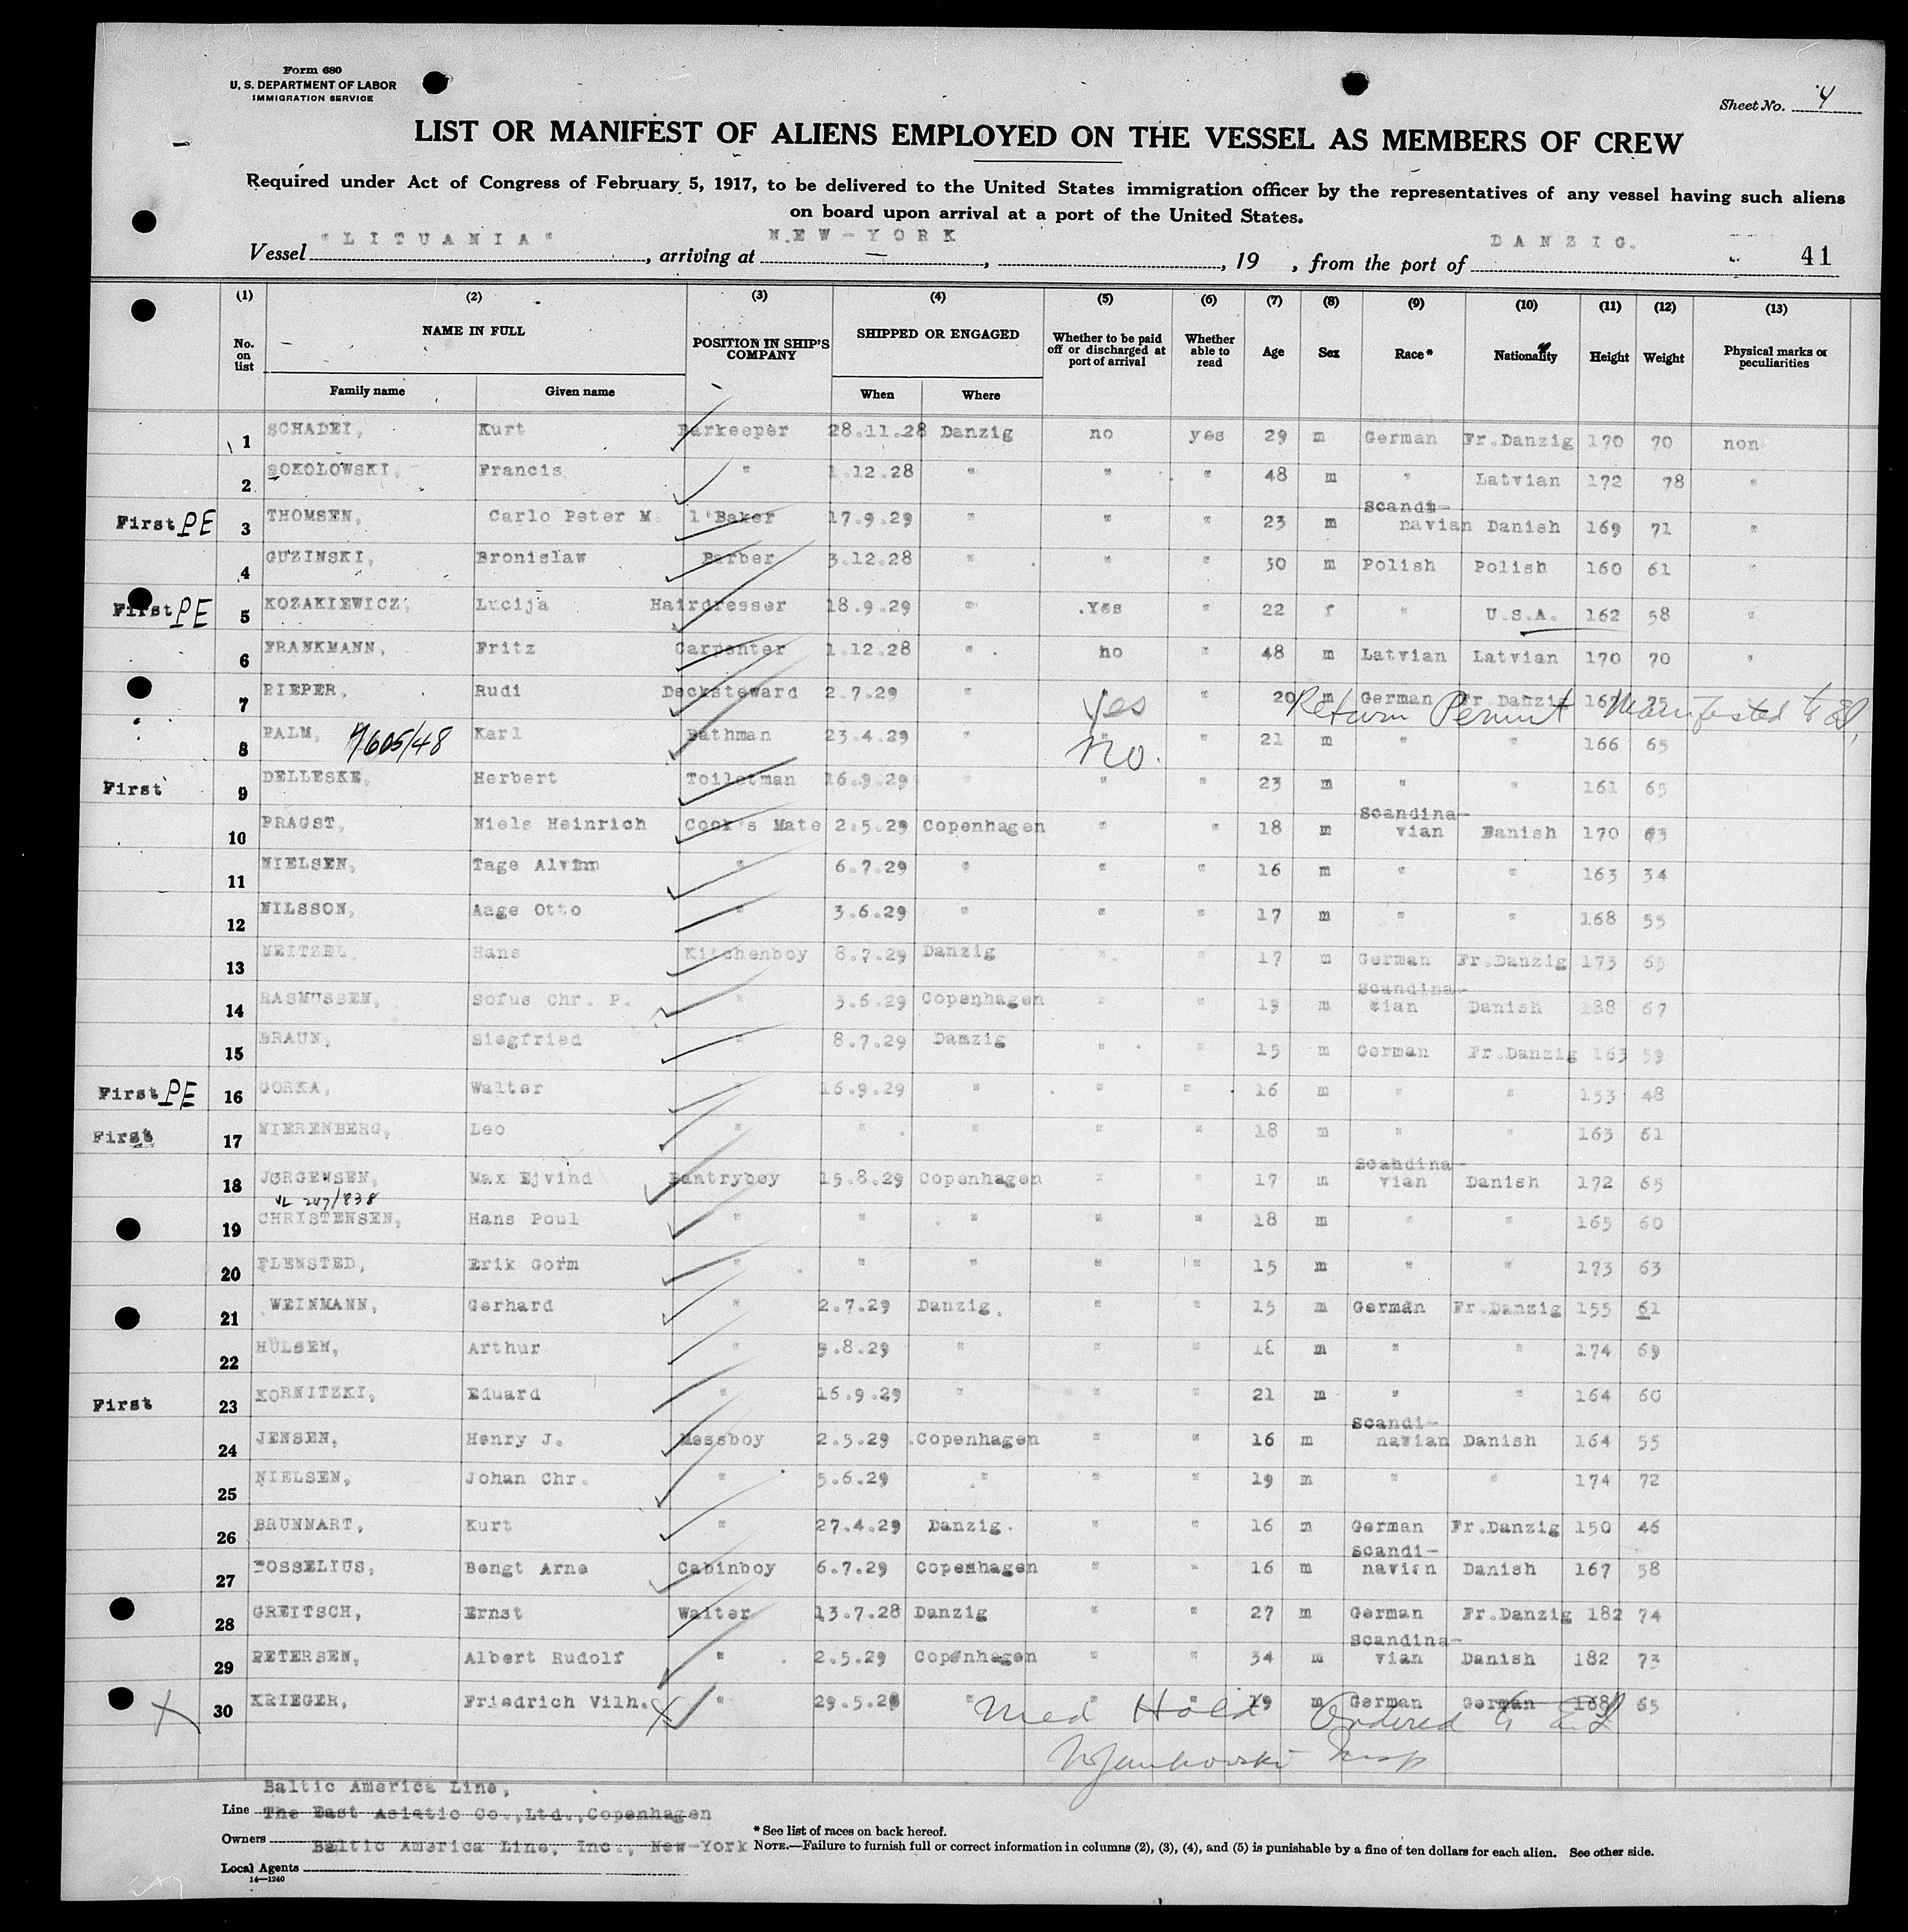 Form 680
U. S. DEPARTMENT OF LABOR
IMMIGRATION SERVICE
Sheet No. 4
LIST OR MANIFEST OF ALIENS EMPLOYED ON THE VESSEL AS MEMBERS OF CREW
Required under Act of Congress of February 5, 1917, to be delivered to the United States immigration officer by the representatives of any vessel having such aliens
on board upon arrival at a port of the United States.
Vessel "LITUANIA", arriving at NEW-YORK, , 19 , from the port of DANZIG. 41
(1) (2) (3) (4) (5) (6) (7) (8) (9) (10) (11) (12) (13)
No. on list NAME IN FULL POSITION IN SHIP'S COMPANY SHIPPED OR ENGAGED Whether to be paid off or discharged at port of arrival Whether able to read Age Sex Race* Nationality Height Weight Physical marks or peculiarities
Family name Given name When Where
1 SCHADEI, Kurt Barkeeper 28.11.28 Danzig no yes 29 m German Fr.Danzig 170 70 non
2 SOKOLOWSKI, Francis " 1.12.28 " " " 48 m " Latvian 172 78 "
First PE 3 THOMSEN, Carlo Peter M. 1'Baker 17.9.29 " " " 23 m Scandi-navian Danish 169 71 "
4 GUZINSKI, Bronislaw Barber 3.12.28 " " " 50 m Polish Polish 160 61 "
First PE 5 KOZAKIEWICZ, Lucija Hairdresser 18.9.29 " .Yes " 22 f " U.S.A. 162 58 "
6 FRANKMANN, Fritz Carpenter 1.12.28 " no " 48 m Latvian Latvian 170 70 "
7 PIEPER, Rudi Decksteward 2.7.29 " Yes " 20 m German Fr.Danzig Return Permit Manifested to
8 PALM, Karl Bathman 23.4.29 " No. " 21 m " " 166 65
First 9 DELLESKE, Herbert Toiletman 16.9.29 " " " 23 m " " 161 65
10 PRAGST, Niels Heinrich Cook's Mate 2.5.29 Copenhagen " " 18 m Scandina-vian Danish 170 63
11 NIELSEN, Tage " 6.7.29 " " " 16 m " " 163 34
12 NILSSON, Aage Otto " 3.6.29 " " " 17 m " " 168 55
13 NEITZEL Hans Kitchenboy 8.7.29 Danzig " " 17 m German Fr.Danzig 173 65
14 RASMUSSEN, Sofus Chr. P. " 3.6.29 Copenhagen " " 19 m Scandina-vian Danish 188 67
15 BRAUN, Siegfried " 8.7.29 Danzig " " 15 m German Fr.Danzig 163 59
First PE 16 GORKA, Walter " 16.9.29 " " " 16 m " " 153 48
First 17 NIERENBERG, Leo " " " " " 18 m " " 163 61
18 JØRGENSEN, Max Ejvind Pantryboy 15.8.29 Copenhagen " " 17 m Scandina-vian Danish 172 65
19 CHRISTENSEN, Hans Poul " " " " " 18 m " " 165 60
20 FLENSTED, Erik Gorm " " " " " 15 m " " 173 63
21 WEINMANN, Gerhard " 2.7.29 Danzig. " " 15 m German Fr.Danzig 155 61
22 HÜLSEN, Arthur " 9.8.29 " " " 18 m " " 174 69
First 23 KORNITZKI, Eduard " 16.9.29 " " " 21 m " " 164 60
24 JENSEN, Henry J. Messboy 2.5.29 Copenhagen " " 16 m Scandi-navian Danish 164 55
25 NIELSEN, Johan Chr. " 5.6.29 " " " 19 m " " 174 72
26 BRUNNART, Kurt " 27.4.29 Danzig. " " 16 m German Fr.Danzig 150 46
27 POSSELIUS, Bengt Arne Cabinboy 6.7.29 Copenhagen " " 16 m Scandi-navian Danish 167 58
28 GREITSCH, Ernst Waiter 13.7.28 Danzig " " 27 m German Fr.Danzig 182 74
29 PETERSEN, Albert Rudolf " 2.5.29 Copenhagen " " 34 m Scandina-vian Danish 182 73
30 KRIEGER, Friedrich Vilh. " 29.5.28 " " " 19 m German German 168 65
Med Hold Ordered to E I
Insp
Baltic America Line,
Line The East Asiatic Co.,Ltd.,Copenhagen
* See list of races on back hereof.
Owners Baltic America Line, Inc., New-York
NOTE.—Failure to furnish full or correct information in columns (2), (3), (4), and (5) is punishable by a fine of ten dollars for each alien. See other side.
Local Agents
14—1240